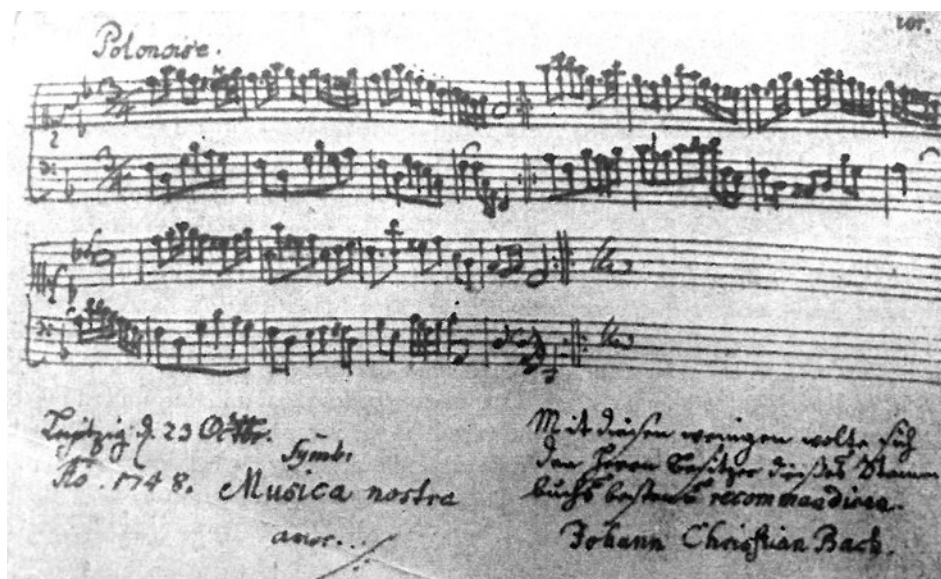 Polonoise.
Leipzig d. 23 Octbr.
Ao. 1748.
Symb:
Musica nostra
amor...
Mit diesen wenigen wolte sich
dem Herrn Besitzer dieses Stamm
buchs bestens recommandiren.
Johann Christian Bach.